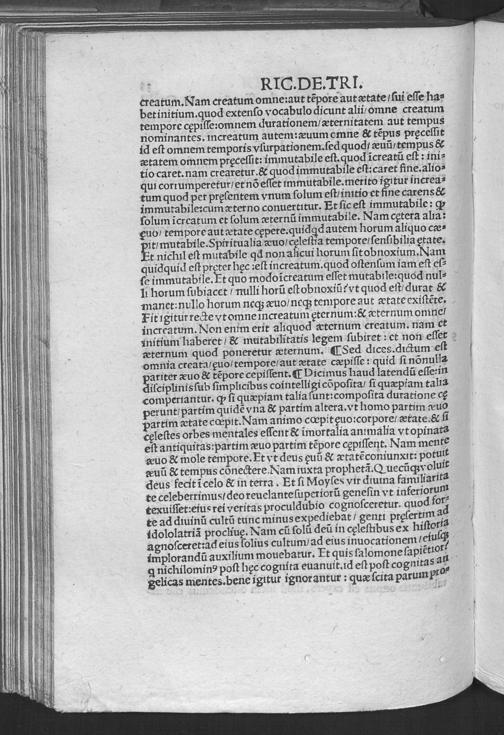 RIC.DE.TRI.
creatum. Nam creatum omne: aut tēpore aut ætate/sui esse ha-
bet initium. quod extenso vocabulo dicunt alii/omne creatum
tempore cępisse: omnem durationem/æternitatem aut tempus
nominantes. increatum autem: æuum omne & tēpus pręcessit
id est omnem temporis vsurpationem. sed quod/æuū/tempus &
ætatem omnem pręcessit: immutabile est. quod īcreatū est: ini-
tio caret. nam crearetur. & quod immutabile est: caret fine. alio-
qui corrumperetur/et nō esset immutabile. merito igitur increa-
tum quod per pręsentem vnum solum est/initio et fine carens &
immutabile: cum æterno conuertitur. Et sic est immutabile: ꝙ
solum īcreatum et solum æternū immutabile. Nam cętera alia:
ęuo/tempore aut ætate cępere. quidqd autem horum aliquo cæ-
pit/mutabile. Spiritualia æuo/cęlestia tempore/sensibilia ętate.
Et nichil est mutabile qd non alicui horum sit obnoxium. Nam
quidquid est pręter hęc: est increatum. quod ostensum iam est es-
se immutabile. Et quo modo īcreatum esset mutabile: quod nul-
li horum subiacet/nulli horū est obnoxiū? vt quod est/durat &
manet: nullo horum necꝫ æuo/necꝫ tempore aut ætate existēte.
Fit igitur recte vt omne increatum ęternum: & æternum omne/
increatum. Non enim erit aliquod æternum creatum. nam et
initium haberet/& mutabilitatis legem subiret: et non esset
æternum quod poneretur æternum. ¶Sed dices. dictum est
omnia creata/ęuo/tempore/aut ætate cæpisse: quid si nōnulla
pariter æuo & tēpore cępissent. ¶Dicimus haud latendū esse: in
disciplinis sub simplicibus cointelligi cōposita/si quæpiam talia
comperiantur. ꝙ si quæpiam talia sunt: composita duratione cę
perunt/partim quidē vna & partim altera. vt homo partim æuo
partim ætate cœpit. Nam animo cœpit ęuo: corpore/ætate. & si
cęlestes orbes mentales essent & imortalia animalia vt opinata
est antiquitas: partim æuo partim tēpore cępissent. Nam mente
æuo & mole tempore. Et vt deus ęuū & ætatē coniunxit: potuit
æuū & tempus cōnectere. Nam iuxta prophetā. Quecūqꝫ voluit
deus fecit ī celo & in terra. Et si Moyses vir diuina familiarita
te celeberrimus/deo reuelante superiorū genesin vt inferiorum
texuisset: eius rei veritas proculdubio cognosceretur. quod for-
te ad diuinū cultū tunc minus expediebat/genti pręsertim ad
idololatriā procliuę. Nam cū solū deū in cęlestibus ex historia
agnosceret: ad eius solius cultum/ad eius inuocationem/eiusqꝫ
implorandū auxilium mouebatur. Et quis salomone sapiētior?
q nichilominꝰ post hęc cognita euanuit. id est post cognitas an
gelicas mentes. bene igitur ignorantur: quæ scita parum pro-